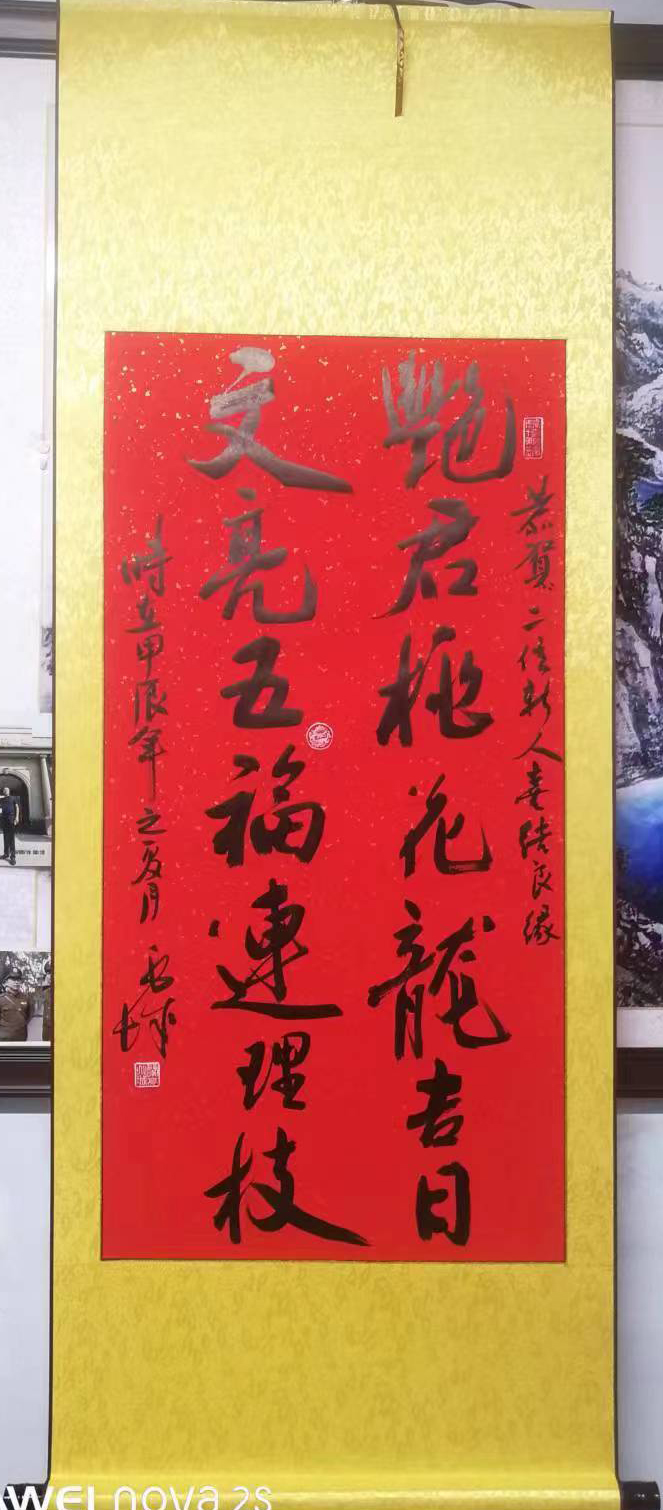 恭賀二位新人喜结良缘
艷君桃花龍吉日
文亮五福連理枝
時在甲辰年之夏月
WEI nova 2s